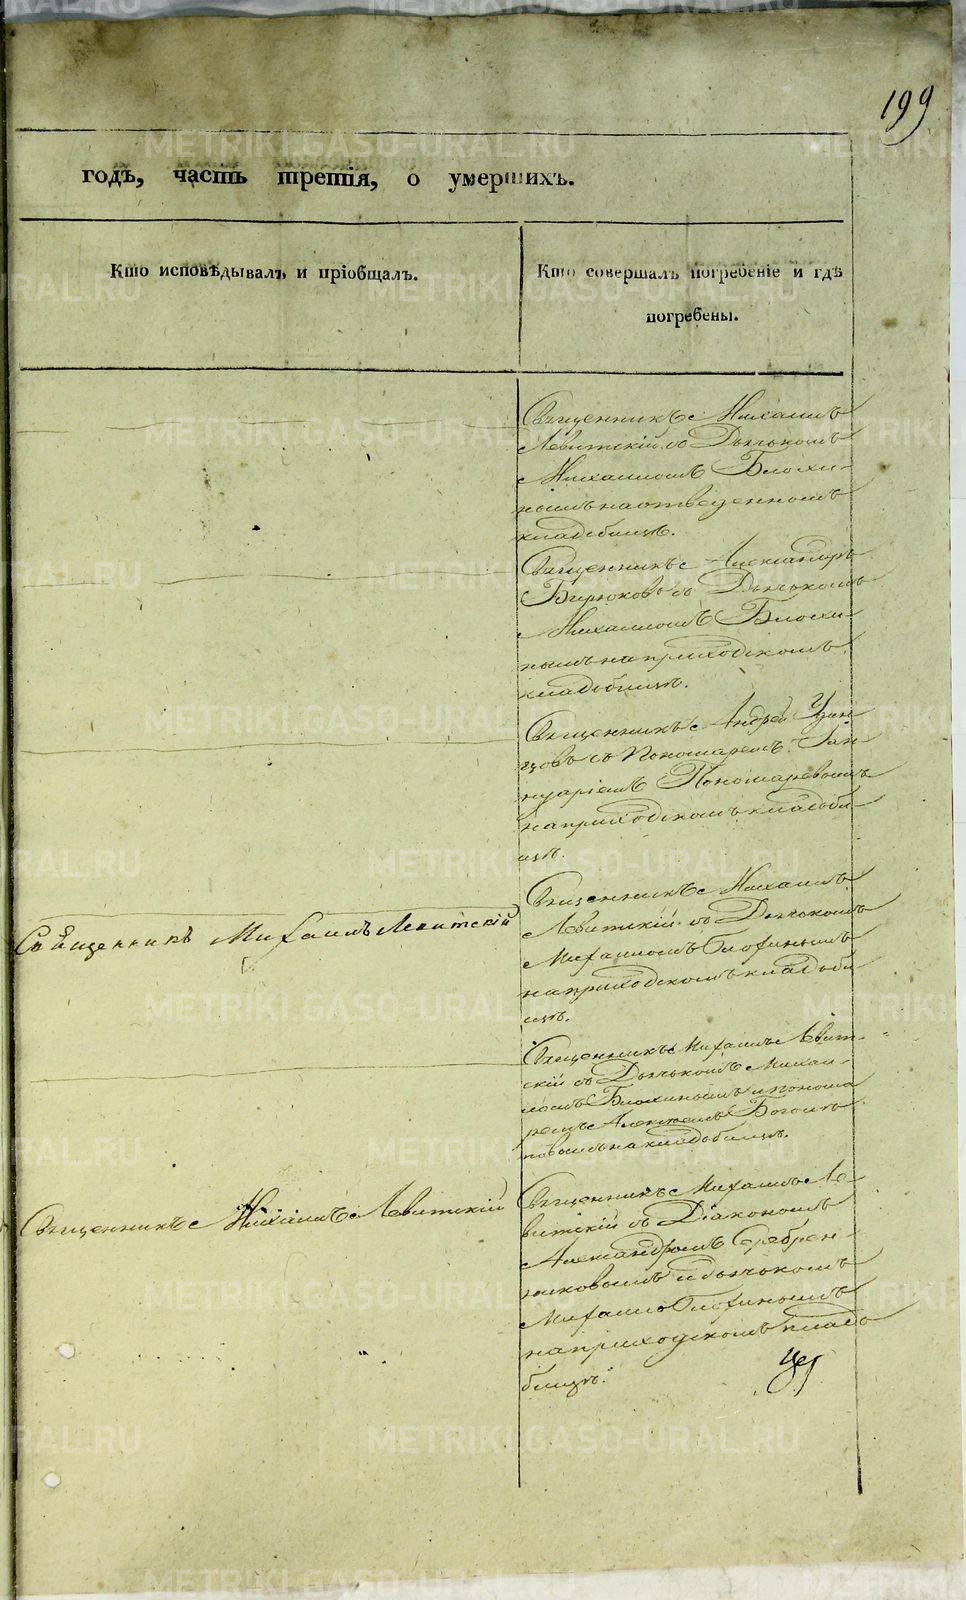 199
годъ, часть третія, о умершихъ.
Кто исповѣдывалъ и пріобщалъ.
Кто совершалъ погребеніе и гдѣ
погребены.
Священникъ Михаилъ
Левитскій съ Дьячькомъ
Михаиломъ Блохи-
нымъ на отведенномъ
кладбищѣ.
Священникъ Александръ
Бирюковъ съ Дьячькомъ
Михаиломъ Блохи-
нымъ на приходскомъ
кладбищѣ.
Священникъ Андрей
съ Пономаремъ Іан-
нуаріемъ Пономаревымъ
на приходскомъ кладби-
щѣ.
Священникъ Михаилъ Левитскій
Священникъ Михаилъ
Левитскій съ Дьячькомъ
Михаиломъ Блохинымъ
на приходскомъ кладби
щѣ.
Священникъ Михаилъ Левит-
скій съ Дьячькомъ Михаи-
ломъ Блохинымъ и понома
ремъ Алексѣемъ
на кладбищѣ.
Священникъ Михаилъ Левитскій
Священникъ Михаилъ Ле-
витскій съ Діакономъ
Александромъ Серебрен-
никовымъ и дьячькомъ
Михаило Блохинымъ
на приходскомъ кладъ
бищѣ.
METRIKI.GASO-URAL.RU